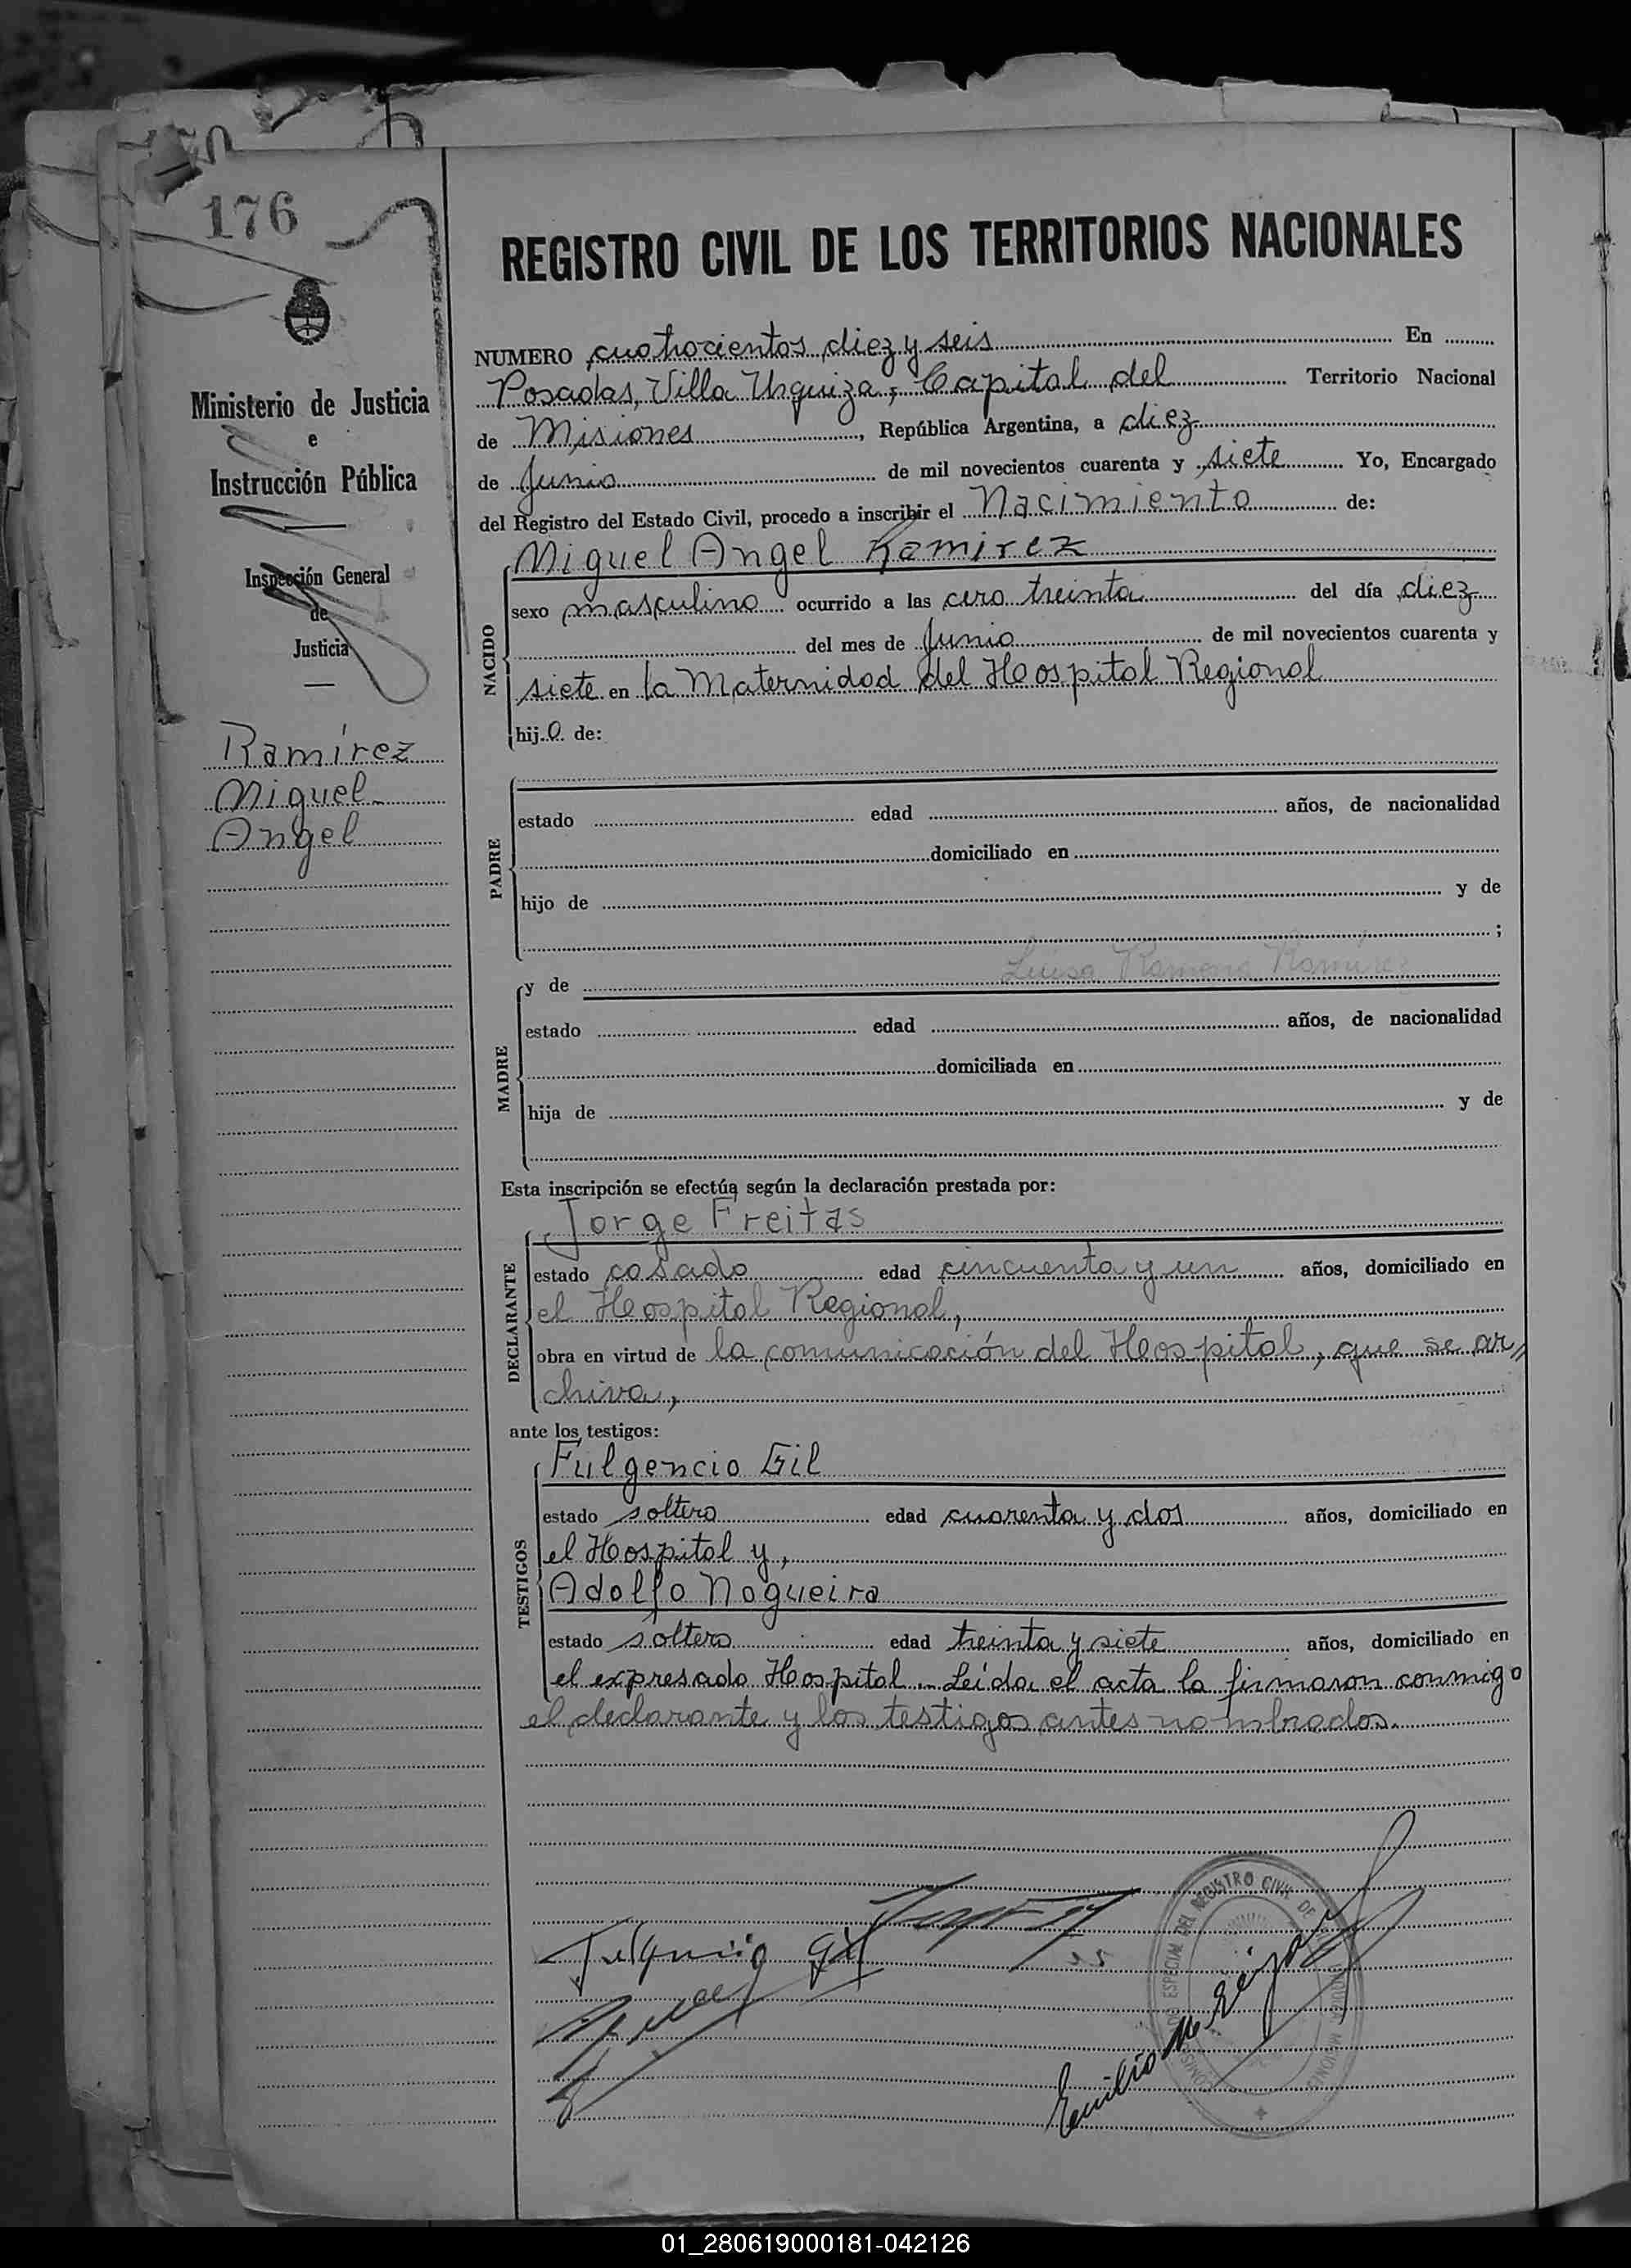 176
REGISTRO CIVIL DE LOS TERRITORIOS NACIONALES
Ministerio de Justicia
e
Instrucción Pública
Inspección General
de
Justicia
Ramírez
Miguel
Angel
NUMERO cuatrocientos diez y seis En
Posadas, Villa Urquiza, Capital del Territorio Nacional
de Misiones, República Argentina, a diez
de Junio de mil novecientos cuarenta y siete Yo, Encargado
del Registro del Estado Civil, procedo a inscribir el Nacimiento de:
Miguel Angel Ramirez
NACIDO
sexo masculino ocurrido a las cero treinta del día diez
del mes de Junio de mil novecientos cuarenta y
siete en la Maternidad del Hospital Regional
hijo de:
PADRE
estado edad años, de nacionalidad
domiciliado en
hijo de y de
;
MADRE
y de Luisa Ramona Ramirez
estado edad años, de nacionalidad
domiciliada en
hija de y de
Esta inscripción se efectúa según la declaración prestada por:
Jorge Freitas
DECLARANTE
estado casado edad cincuenta y un años, domiciliado en
el Hospital Regional,
obra en virtud de la comunicación del Hospital, que se ar//
chiva,
ante los testigos:
Fulgencio Gil
TESTIGOS
estado soltero edad cuarenta y dos años, domiciliado en
el Hospital y,
Adolfo Nogueira
estado soltero edad treinta y siete años, domiciliado en
el expresado Hospital.- Leída el acta la firmaron conmigo
el declarante y los testigos antes nombrados.
Fulgencio Gil
ESPECIAL DEL REGISTRO CIVIL DE
MISIONES
Emilio
01_280619000181-042126